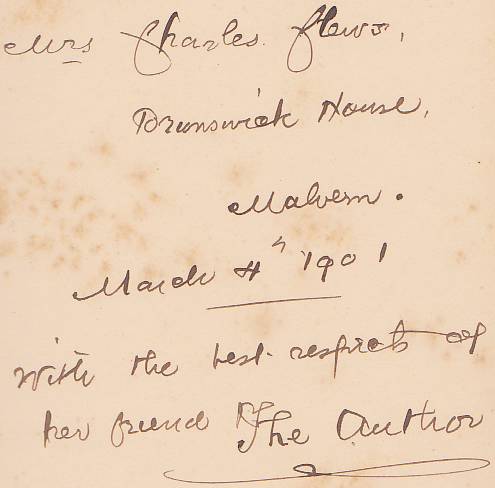 Mrs Charles
Brunswick House,
Malvern.
March 4th 1901
With the best respects of
her friend The Author